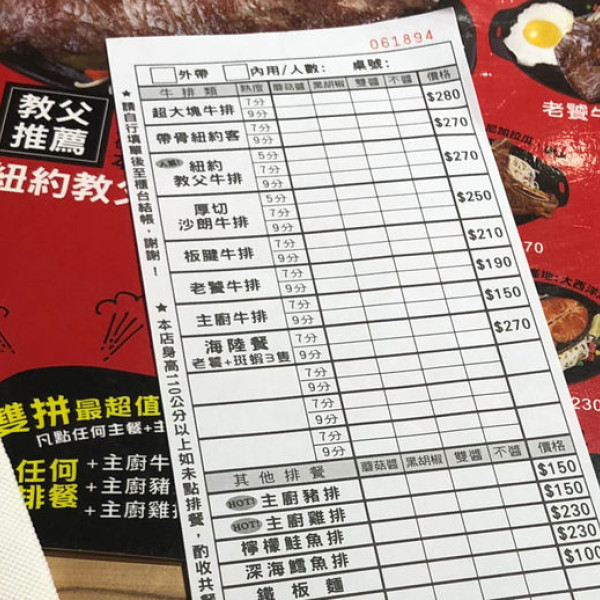 061894
外帶 內用/人數: 桌號:
牛排類 熟度 蘑菇醬 黑胡椒 雙醬 不醬 價格
超大塊牛排 7分 9分 $280
帶骨紐約客 7分 9分 $270
人氣! 紐約教父牛排 5分 7分 9分 $270
厚切沙朗牛排 5分 7分 9分 $250
板腱牛排 7分 9分 $210
老饕牛排 7分 9分 $190
主廚牛排 7分 9分 $150
海陸餐 老饕+斑蝦3隻 7分 9分 $270
7分
9分
7分
9分
7分
9分
其他排餐 蘑菇醬 黑胡椒 雙醬 不醬 價格
HOT! 主廚豬排 $150
HOT! 主廚雞排 $150
檸檬鮭魚排 $230
深海鱈魚排 $230
鐵板麵 $100
★請自行填單後至櫃台結帳,謝謝!
★本店身高110公分以上如未點排餐,酌收共餐
教父
推薦
紐約教父
雙拼最超值
凡點任何主餐+主
任何
排餐
+主廚牛
+主廚豬
+主廚雞排
老饕牛
70
產地:大西洋
230